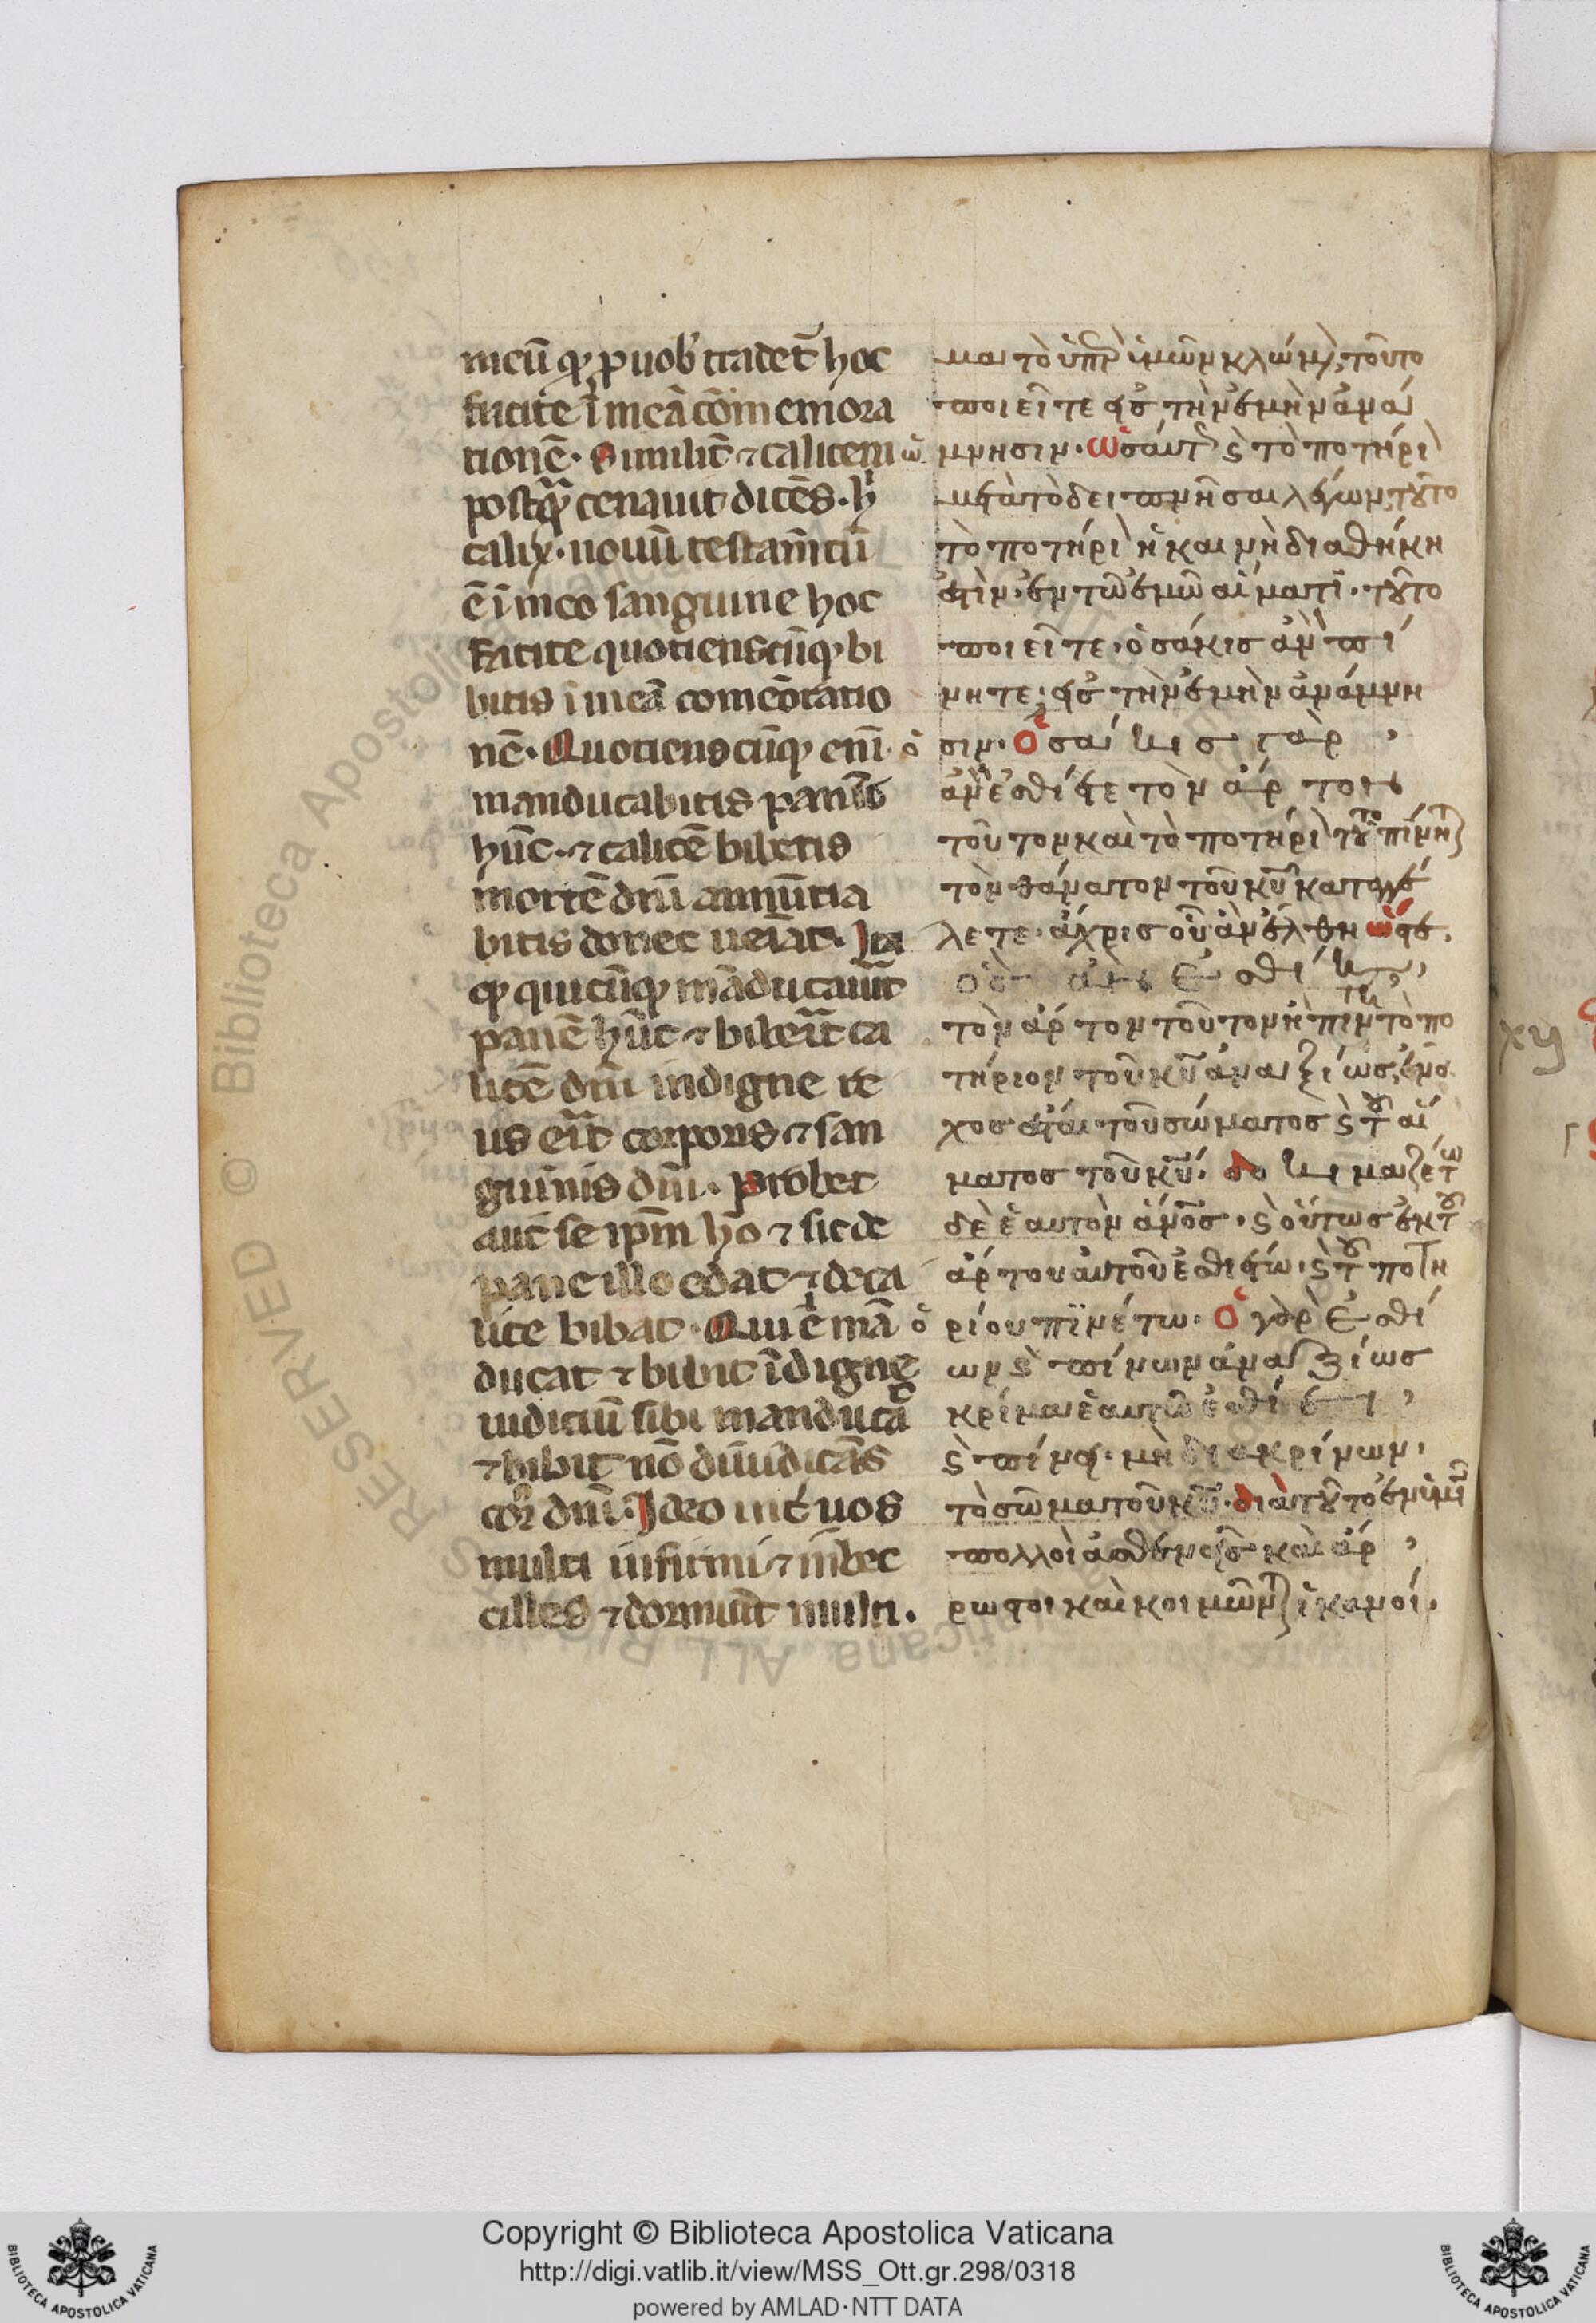 meū qḋ ꝓ uob' tradet̄ hoc
facite ī meā cōmemora
tionē. Similit̄ ⁊ calicem
postqᷓ cenauit dicēs. h̄
calix. nouū testam̄tū
ē ī meo sanguine hoc
facite quotienscūq; bi
bitis ī meā comēoratio
nē. Quotienscūq; enī
manducabitis panē
hūc. ⁊ calicē bibetis
mortē dn̄i annūtia
bitis donec ueīat. Ita
qꝫ quicūq; māducauit̄
panē hūc ⁊ biberit̄ ca
licē dn̄i indigne re
us erit̄ corporis ⁊ san
guinis dn̄i. Probet
aut̄ se ip̄m hō ⁊ sic de
pane illo edat ⁊ de ca
lice bibat. Qui ē mā
ducat ⁊ bibit īdigne
iudiciū sibi manducat
⁊ bibit nō diiudicās
cor dn̄i. Ideo int̄ uos
multi infirmi ⁊ īmbec
cilles ⁊ dormiūt multi.
μα τὸ ὑπὲρ ὑμῶν κλώμ. τοῦτο
ποιεῖτε εἰς τὴν ἐμὴν ἀνά
μνησιν. ὡσαύτ ϗ τὸ ποτήρι
μετὰ τὸ δειπνῆσαι λέγων, τοῦτο
τὸ ποτήρι ἡ καινὴ διαθήκη
ἐστὶν ἐν τῶ ἐμῶ αἵματι. τοῦτο
ποιεῖτε, ὁσάκισ ἂν πί
νητε, εἰς τὴν ἐμὴν ἀνάμνη
σιν. ὁσάκισ γὰρ
ἂν ἐσθίητε τὸν ἄρτον
τοῦτον καὶ τὸ ποτήρι τοῦτο πίνητ
τὸν θάνατον τοῦ κ̄υ καταγγέ
λετε. ἄχρισ οὗ ἂν ἔλθη ὥστε.
ὃσ ἂν ἐσθίη,
τὸν ἄρτον τοῦτον ἢ πίνη τὸ πο
τήριον τοῦ κ̄υ ἀναξίωσ, ἔνο
χοσ ἔσται τοῦ σώματοσ ϗ τοῦ αἵ
ματοσ τοῦ κ̄υ. δοκιμαζέτω
δὲ ἑαυτὸν ἄνο̄σ. ϗ οὕτωσ ἐκ τοῦ
ἄρτου αὐτοῦ ἐσθιέτω. ϗ τοῦ ποτη
ρίου πινέτω. ὁ γὰρ ἐσθί
ων ϗ πίνων ἀναξίωσ
κρίμα ἑαυτῶ ἐσθίει
ϗ πίνει. μὴ διακρίνων,
τὸ σῶμα τοῦ κ̄υ. διὰ τοῦτο ἐν ὑμῖν
πολλοὶ ἀσθενεῖσ καὶ ἄρ
ρωστοι καὶ κοιμῶντ ἱκανοί.
Copyright © Biblioteca Apostolica Vaticana
http://digi.vatlib.it/view/MSS_Ott.gr.298/0318
powered by AMLAD·NTT DATA